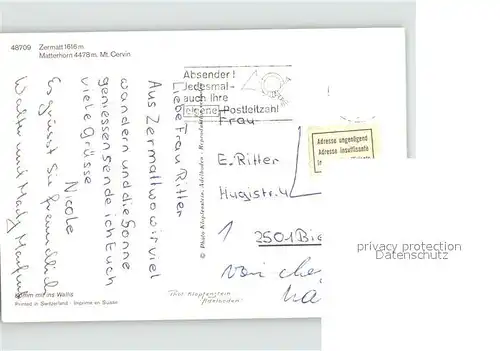 48709 Zermatt 1616 m.
Matterhorn 4478 m. Mt. Cervin
Absender!
Jedesmal-
auch Ihre
eigene Postleitzahl
Liebe Frau Ritter
Aus Zermatt wo wir viel
wandern und die Sonne
geniessen sende ich Euch
viele Grüsse
Nicole
Es grüsst Sie freundlich
Walter und Mady
© Photo Klopfenstein, Adelboden
Frau
E. Ritter
Hugistr. 4
1
2501 Bie
Adresse ungenügend
Adresse insuffisante
privacy protection
Copyright protection
Komm mit ins Wallis
Printed in Switzerland - Imprimé en Suisse
Phot Klopfenstein
Adelboden